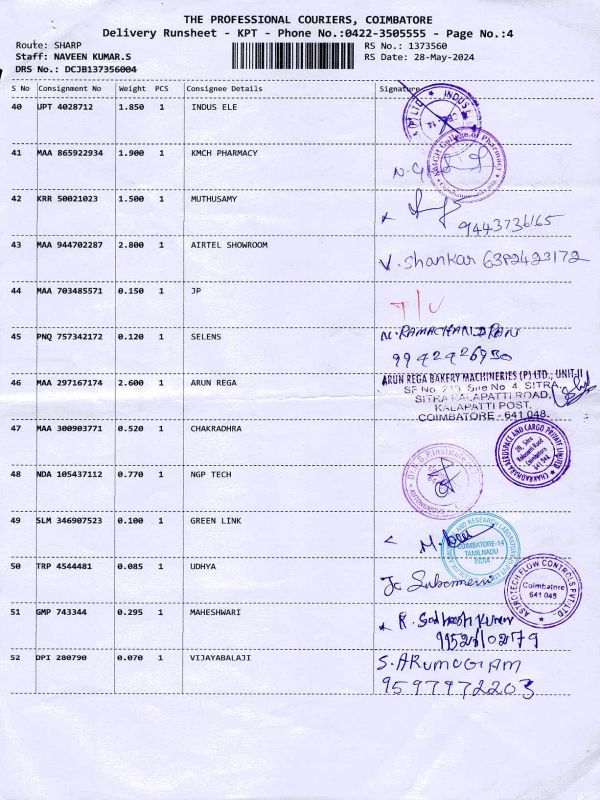 THE PROFESSIONAL COURIERS, COIMBATORE
Delivery Runsheet - KPT - Phone No.:0422-3505555 - Page No.:4
Route: SHARP
RS No.: 1373560
Staff: NAVEEN KUMAR.S
RS Date: 28-May-2024
DRS No.: DCJB137356004
S No Consignment No Weight PCS Consignee Details Signature
40 UPT 4028712 1.850 1 INDUS ELE
41 MAA 865922934 1.900 1 KMCH PHARMACY
KMCH College of Pharmacy
42 KRR 50021023 1.500 1 MUTHUSAMY
9443736165
43 MAA 944702287 2.800 1 AIRTEL SHOWROOM
V. Shankar 6382423172
44 MAA 703485571 0.150 1 JP
45 PNQ 757342172 0.120 1 SELENS
M. RAMACHANDRAN
9942926930
46 MAA 297167174 2.600 1 ARUN REGA
ARUN REGA BAKERY MACHINERIES (P) LTD., UNIT-II
SF No. 213, Site No 4, SITRA,
SITRA KALAPATTI ROAD,
KALAPATTI POST,
COIMBATORE - 641 048.
47 MAA 300903771 0.520 1 CHAKRADHRA
CHAKRADHARA AEROSPACE AND CARGO PRIVATE LIMITED
48 NDA 105437112 0.770 1 NGP TECH
49 SLM 346907523 0.100 1 GREEN LINK
COIMBATORE-14
TAMILNADU
INDIA
50 TRP 4544481 0.085 1 UDHYA
ASTROTECH FLOW CONTROLS PVT LTD
Coimbatore
641 048
51 GMP 743344 0.295 1 MAHESHWARI
52 DPI 280790 0.070 1 VIJAYABALAJI
S. ARUMUGAM
9597972203